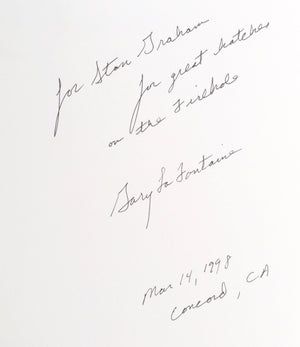 for Stan Graham
for great hatches
on the Firehole
Gary La Fontaine
Mar 14, 1998
Concord, CA